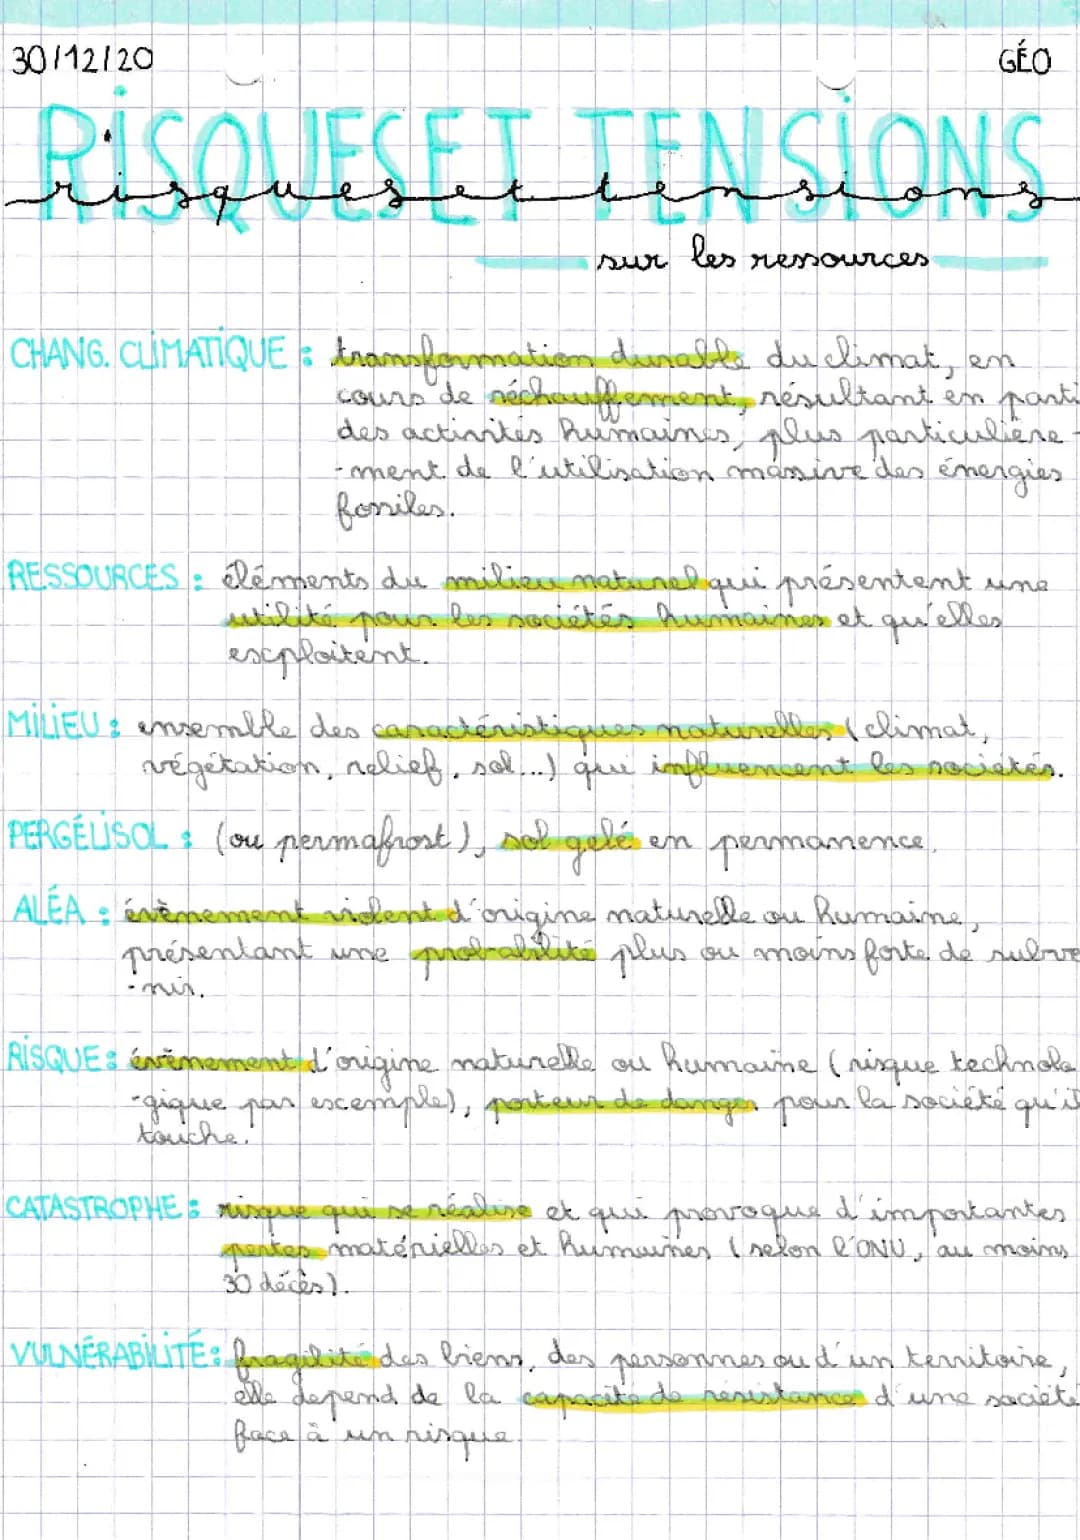 30/12/20 GÉO
RISQUES ET TENSIONS
risques et tensions
sur les ressources
CHANG. CLIMATIQUE : transformation durable du climat, en
cours de réchauffement, résultant en parti
des activités humaines, plus particulière-
-ment de l'utilisation massive des énergies
fossiles.
RESSOURCES : éléments du milieu naturel qui présentent une
utilité pour les sociétés humaines et qu'elles
exploitent.
MILIEU : ensemble des caractéristiques naturelles (climat,
végétation, relief, sol...) qui influencent les sociétés.
PERGÉLISOL : (ou permafrost), sol gelé en permanence.
ALÉA : évènement violent d'origine naturelle ou humaine,
présentant une probabilité plus ou moins forte de subve
-nir.
RISQUE : évènement d'origine naturelle ou humaine (risque technolo
-gique par exemple), porteur de danger pour la société qu'il
touche.
CATASTROPHE : risque qui se réalise et qui provoque d'importantes
pertes matérielles et humaines (selon l'ONU, au moins
30 décès).
VULNÉRABILITÉ : fragilité des biens, des personnes ou d'un territoire,
elle depend de la capacité de résistance d'une société
face à un risque.